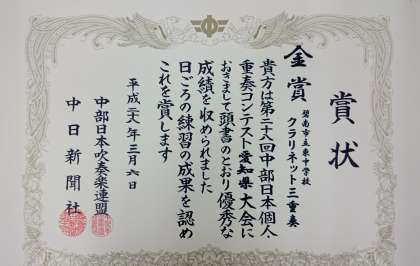 賞状
金賞
碧南市立東中学校
クラリネット三重奏
貴方は第二十八回中部日本個人・
重奏コンテスト愛知県大会に
おきまして頭書のとおり優秀な
成績を収められました
日ごろの練習の成果を認め
これを賞します
平成二十八年三月六日
中部日本吹奏楽連盟
中日新聞社